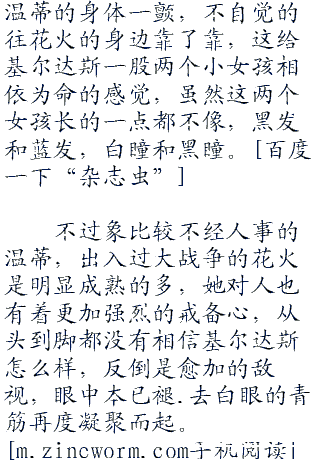 温蒂的身体一颤，不自觉的
往花火的身边靠了靠，这给
基尔达斯一股两个小女孩相
依为命的感觉，虽然这两个
女孩长的一点都不像，黑发
和蓝发，白瞳和黑瞳。[百度
一下“杂志虫”]
不过象比较不经人事的
温蒂，出入过大战争的花火
是明显成熟的多，她对人也
有着更加强烈的戒备心，从
头到脚都没有相信基尔达斯
怎么样，反倒是愈加的敌
视，眼中本已褪.去白眼的青
筋再度凝聚而起。
[m.zincworm.com手机阅读]